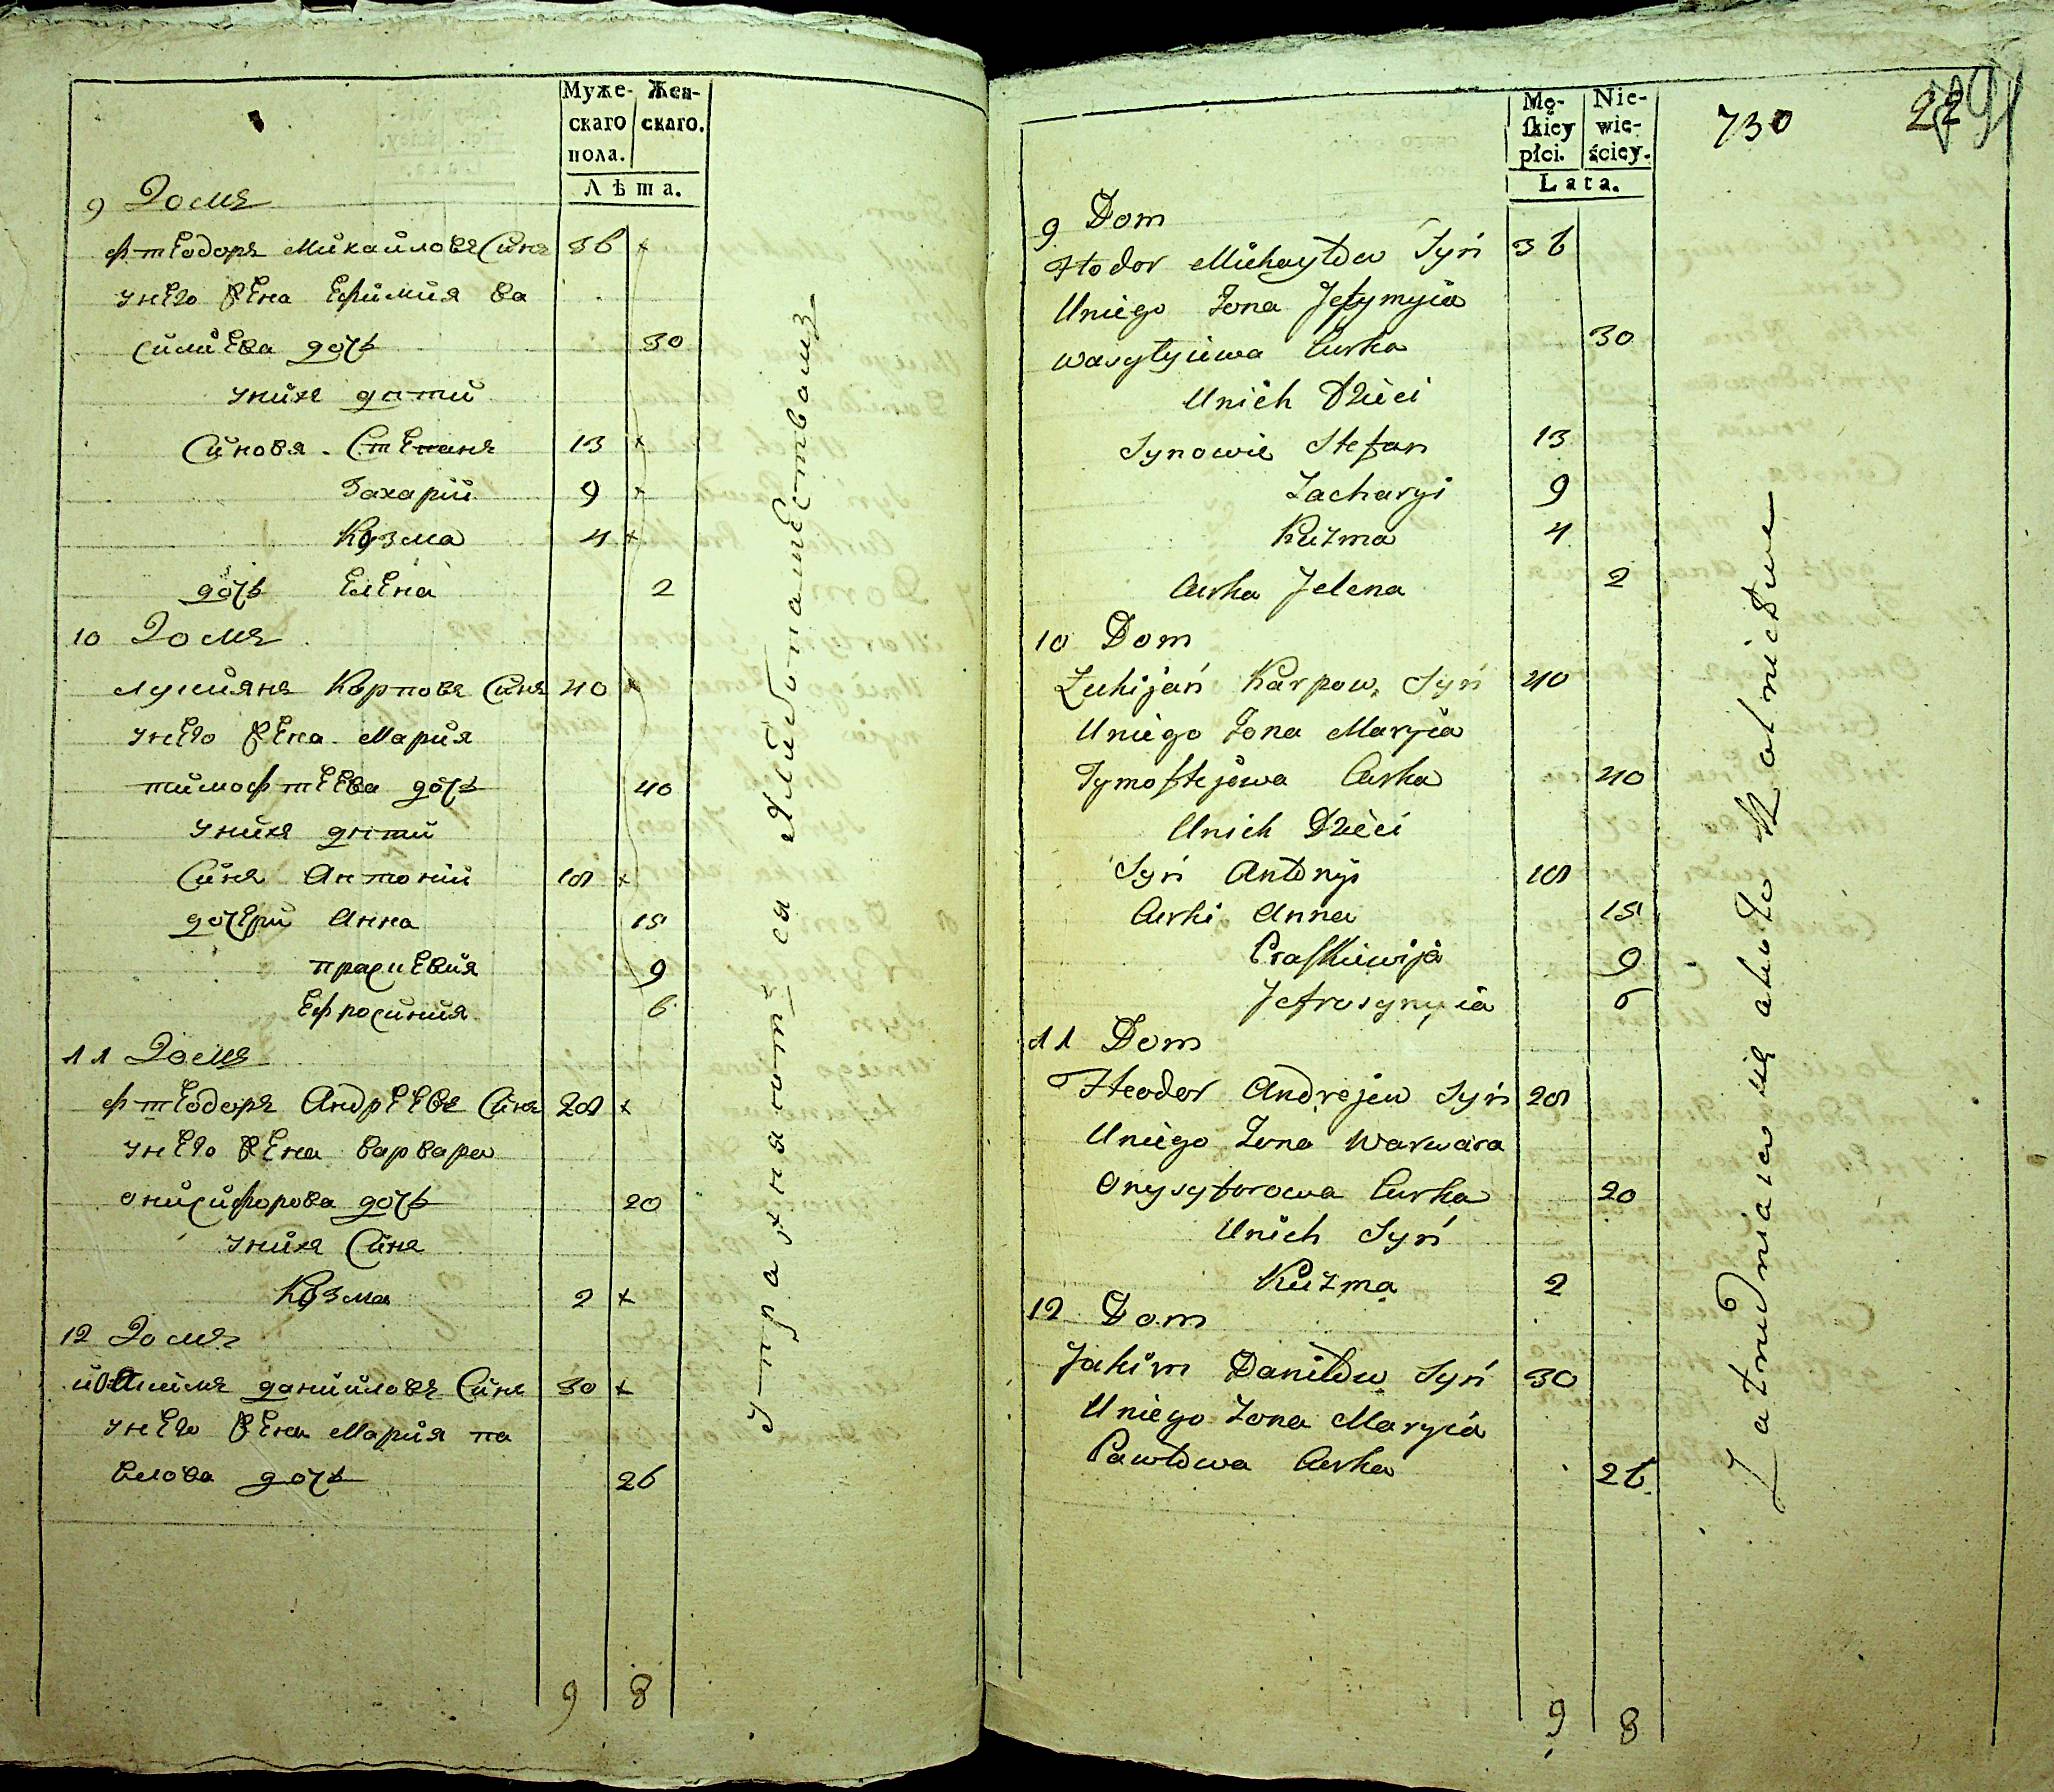 Муже-
скаго
пола.
Жен-
скаго.
Лѣта.
9 Домъ
Фтеодоръ Михайловъ Синъ 36
унего жена Ефимия Ва
силиева дочь 30
унихъ дѣти
Синовя Степанъ 13
Захарiй 9
Козма 4
дочь Елена 2
10 Домъ
Лукиянъ Карповъ Синъ 40
унего жена Мария
тимофтеева дочь 40
унихъ дѣти
Синъ Антонiй 18
дочери Анна 15
праскевия 9
Ефросиния 6
11 Домъ
Фтеодоръ Андреевъ Синъ 28
унего жена Варвара
онисифорова дочь 20
унихъ Синъ
Козма 2
12 Домъ
данииловъ Синъ 30
унего жена Мария па
влова дочь 26
9 8
упражняются хлѣбопашествомъ
Mę-
ſkiey
płci.
Nie-
wie-
ściey.
Lata.
730
22
9 Dom
Fteodor Michayłow Syn 36
Uniego Żona Jefymyia
wasylyiewa Curka 30
Unich Dzieci
Synowie Stefan 13
Zacharyi 9
Kuzma 4
Curka Jelena 2
10 Dom
Łukijan Karpow Syn 40
Uniego Żona Maryia
Tymoftejowa Curka 40
Unich Dzieci
Syn Antonyi 18
Curki Anna 15
Praſkiewija 9
Jefrosynyia 6
11 Dom
Fteodor Andrejew Syn 28
Uniego Żona Warwara
Onysyforowa Curka 20
Unich Syn
Kuzma 2
12 Dom
Jakim Daniłow Syn 30
Uniego Żona Maryia
Pawłowa Curka 26
9 8
Zatrudniaią się około Rolnictwa